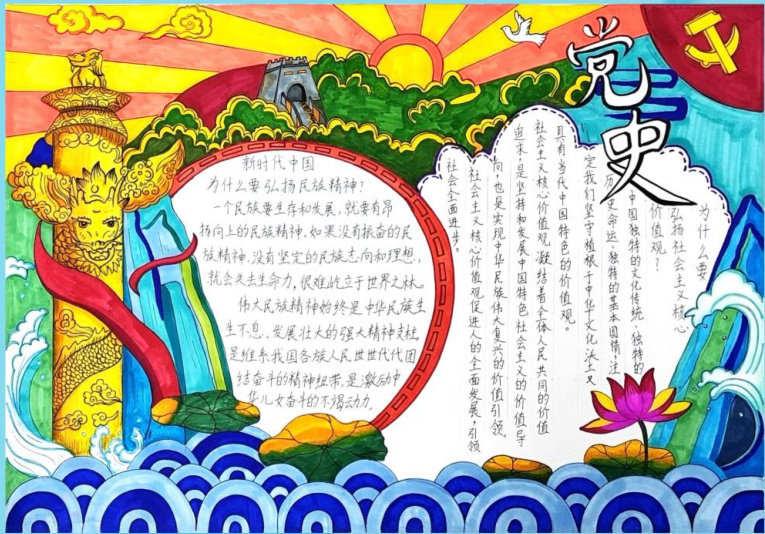 党史
新时代中国
为什么要弘扬民族精神?
一个民族要生存和发展,就要有昂
扬向上的民族精神,如果没有振奋的民
族精神,没有坚定的民族志向和理想,
就会失去生命力,很难屹立于世界之林。
伟大民族精神始终是中华民族生
生不息、发展壮大的强大精神支柱,
是维系我国各族人民世世代代团
结奋斗的精神纽带,是激励中
华儿女奋斗的不竭动力。
为什么要
弘扬社会主义核心
价值观?
中国独特的文化传统、独特的
历史命运、独特的基本国情,注
定我们坚守植根于中华文化沃土又
具有当代中国特色的价值观。
社会主义核心价值观凝结着全体人民共同的价值
追求,是坚持和发展中国特色社会主义的价值导
向,也是实现中华民族伟大复兴的价值引领。
社会主义核心价值观促进人的全面发展,引领
社会全面进步。